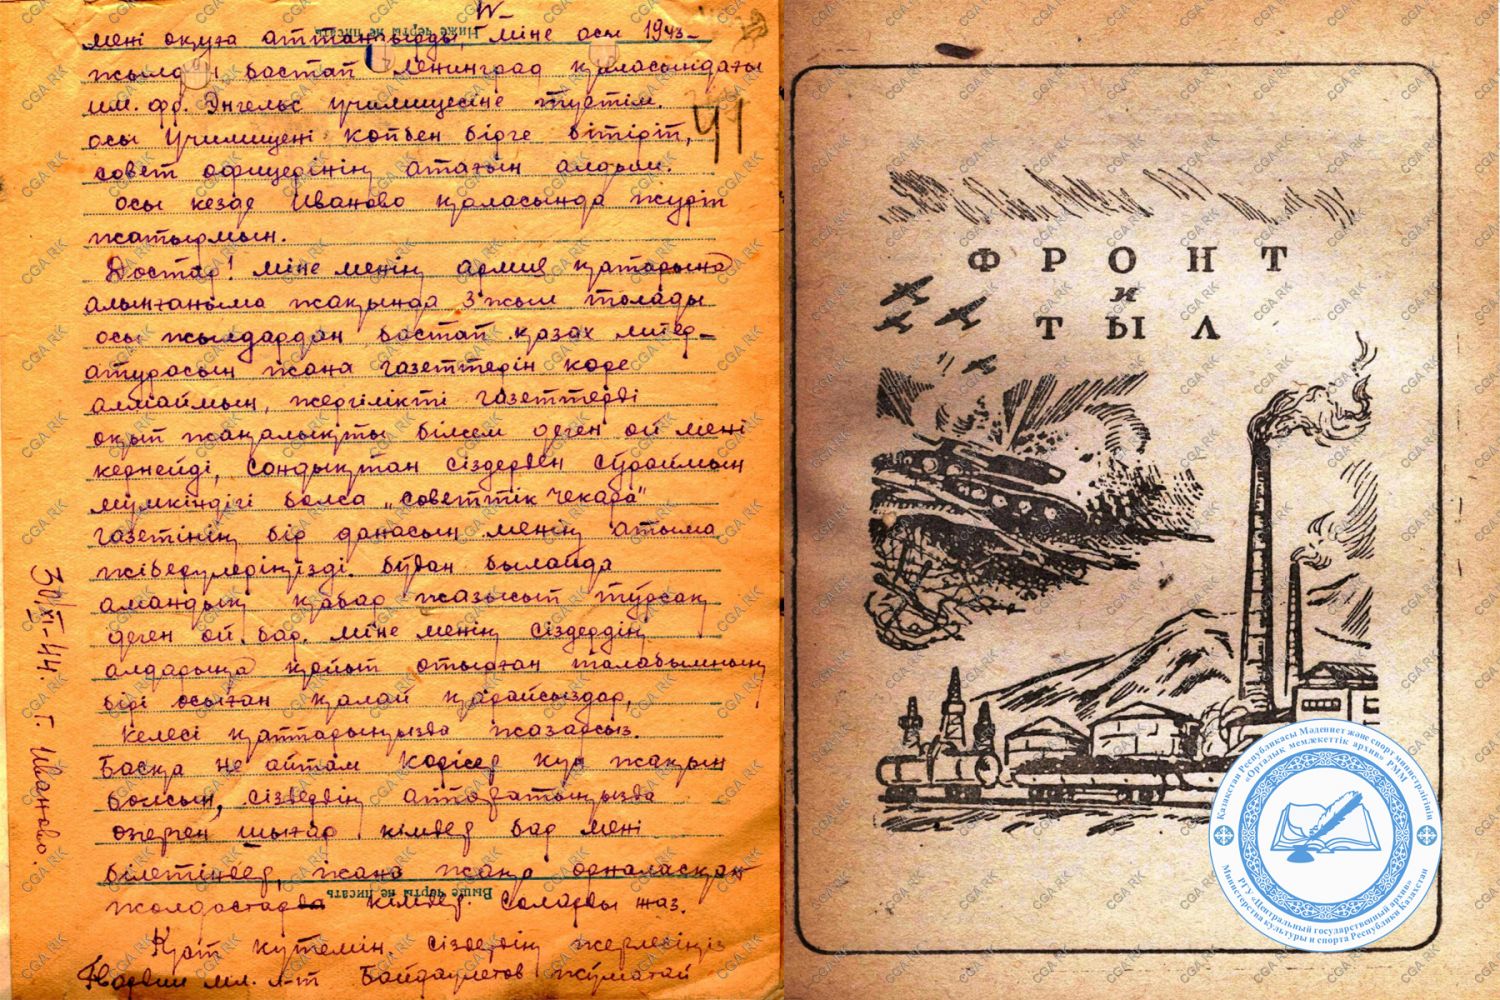 мені оқуға аттандырды, міне осы 1943-
жылдан бастап Ленинград қаласындағы
им. Фр. Энгельс училищесіне түстім.
осы училищені көпбен бірге бітіріп,
41
совет офицерінің атағын алдым.
осы кезде Иваново қаласында жүріп
жатырмын.
Достар! міне менің армия қатарына
алынғаныма жақында 3 жыл толады
осы жылдардан бастап қазах литер-
атурасын жана газеттерін көре
алмаймын, жергілікті газеттерді
оқып жаңалықты білсем деген ой мені
кернейді, сондықтан сіздерден сұраймын
мүмкіндігі болса „советтік чекара"
газетінің бір данасын менің атыма
жіберулеріңізді. бұдан былайда
амандық қабар жазысып тұрсақ
деген ой бар. міне менің сіздердің
алдарыңа қойып отырған талабымның
бірі осыған қалай қарайсыздар,
келесі қаттарыңызда жазарсыз.
Басқа не айтам көрісер күн жақын
болсын, сіздердің аппаратыңызда
өзгерген шығар кімдер бар мені
білетіндер, жана жаңа орналасқан
жолдастарда кімдер. соларды жаз.
Қат күтемін, сіздердің жерлесіңіз
Гвардии мл. л-т Байдаулетов Жұматай
30/XI-44. г. Иваново.
Ниже черты не писать
Выше черты не писать
ФРОНТ
и
ТЫЛ
Қазақстан Республикасы Мәдениет және спорт министрлігінің
«Орталық мемлекеттік архив» РММ
РГУ «Центральный государственный архив»
Министерства культуры и спорта Республики Казахстан
CGA RK